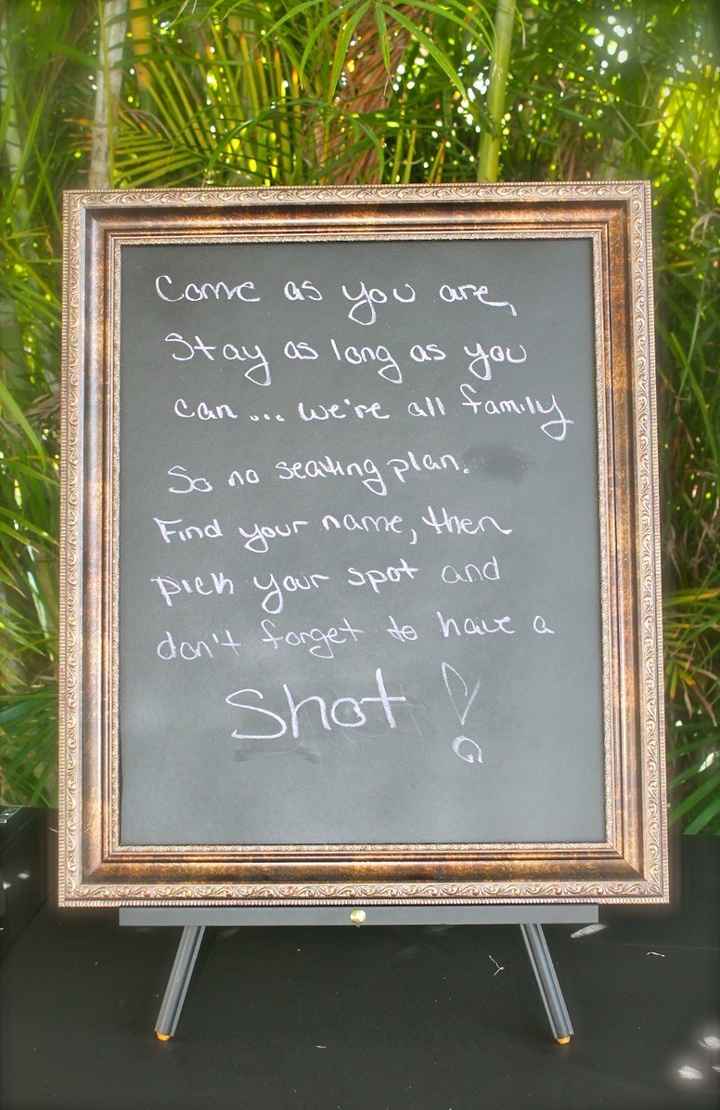 Come as you are,
Stay as long as you
can ... we're all family
So no seating plan.
Find your name, then
pick your spot and
don't forget to have a
Shot!